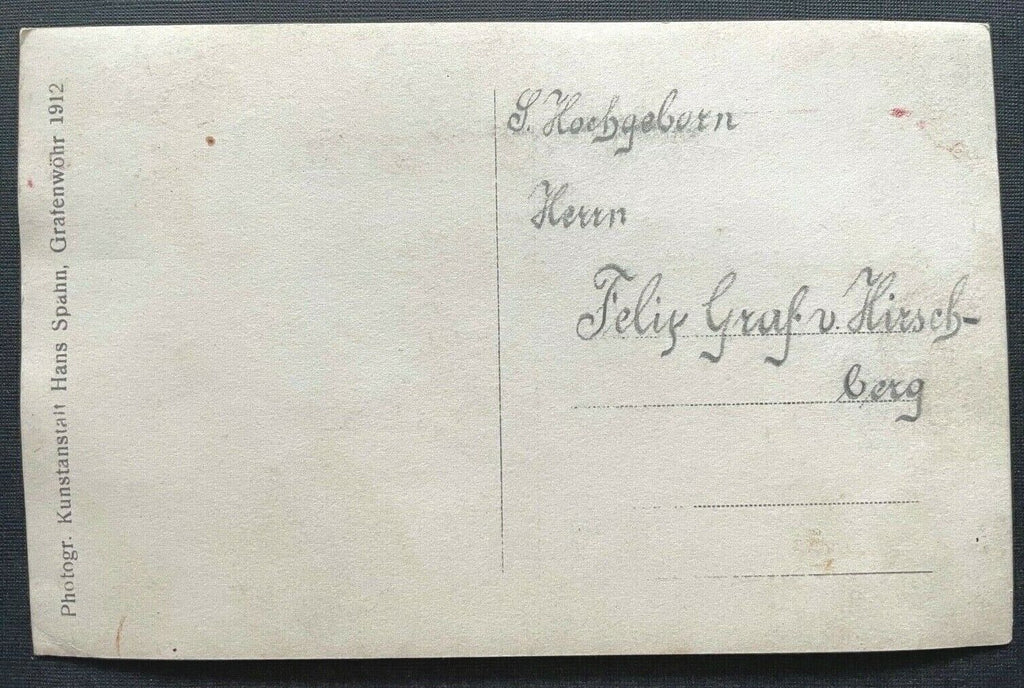 Photogr. Kunstanstalt Hans Spahn, Grafenwöhr 1912
S. Hochgeborn
Herrn
Felix Graf v. Hirsch-
berg